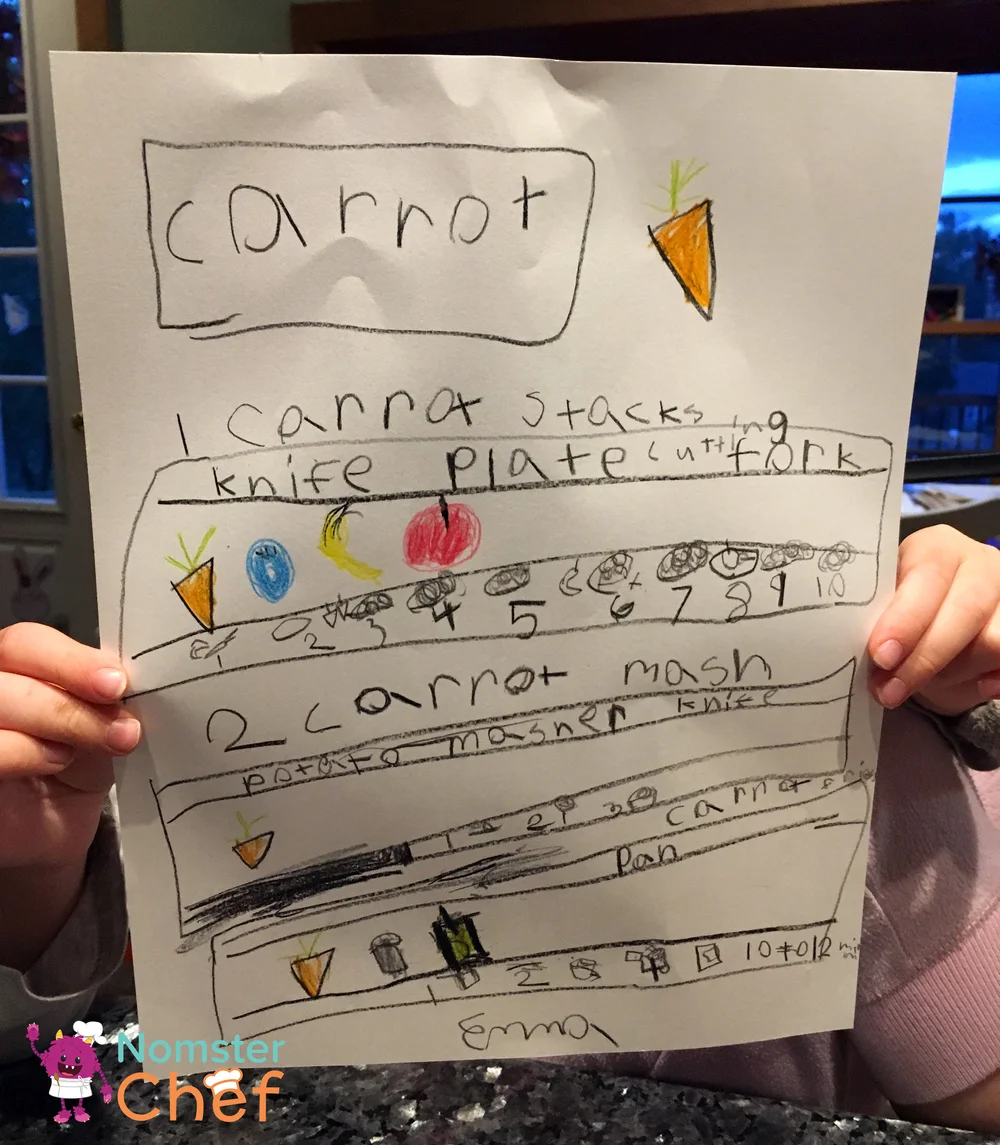 carrot
1 carrot stacks
knife plate cutting fork
1 2 3 4 5 6 7 8 9 10
2 carrot mash
potato masher knife
1 2 3 carrot
pan
1 2 4 10 to 12 min
Nomster
Chef